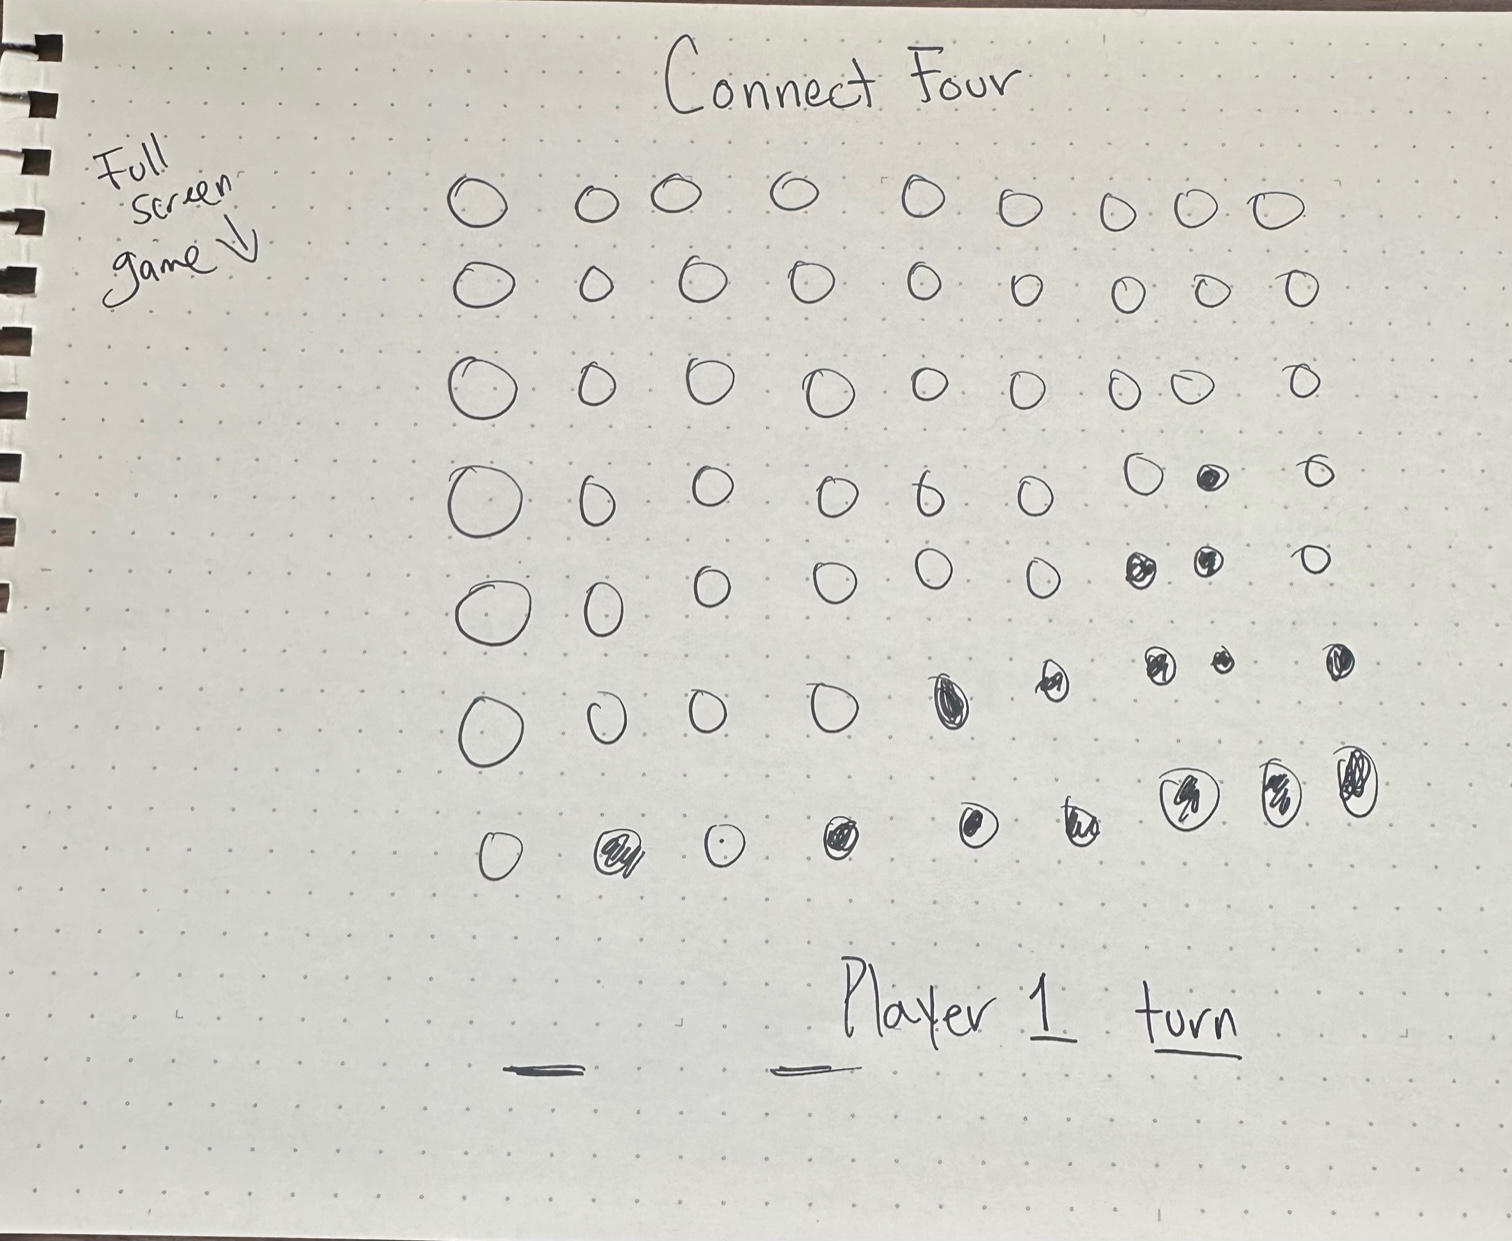 Connect Four
Full
screen
game
Player 1 turn